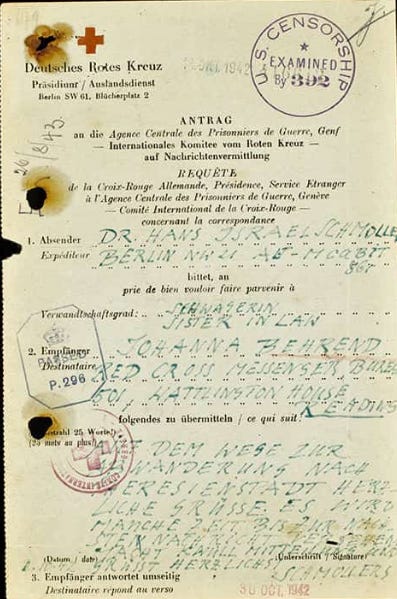 Deutsches Rotes Kreuz
Präsidium / Auslandsdienst
Berlin SW 61, Blücherplatz 2
1942
U.S. CENSORSHIP
EXAMINED
By 392
26/8/43
ANTRAG
an die Agence Centrale des Prisonniers de Guerre, Genf
— Internationales Komitee vom Roten Kreuz —
auf Nachrichtenvermittlung
REQUÊTE
de la Croix-Rouge Allemande, Présidence, Service Etranger
à l'Agence Centrale des Prisonniers de Guerre, Genève
— Comité International de la Croix-Rouge —
concernant la correspondance
1. Absender DR HANS ISRAEL SCHMOLLER
Expéditeur BERLIN NW 21 ALT-MOABIT
86
bittet, an
prie de bien vouloir faire parvenir à
Verwandschaftsgrad: SCHWÄGERIN
SISTER IN LAW
2. Empfänger JOHANNA BEHREND
Destinataire RED CROSS MESSENGER BUREAU
PASSED
P.296
601 WATLINGTON HOUSE
READING
folgendes zu übermitteln / ce qui suit:
25 Worte!)
(25 mots au plus!)
DEM WEGE ZUR
WANDERUNG NACH
HERESIENSTADT HERZ-
LICHE GRÜSSE. ES WIRD
MANCHE ZEIT BIS ZUR
NACHRICHT
MACHT
HERZLICHST
SCHMOLLERS
(Datum / date)
(Unterschrift / Signature)
3. Empfänger antwortet umseitig
Destinataire répond au verso
30 OCT. 1942